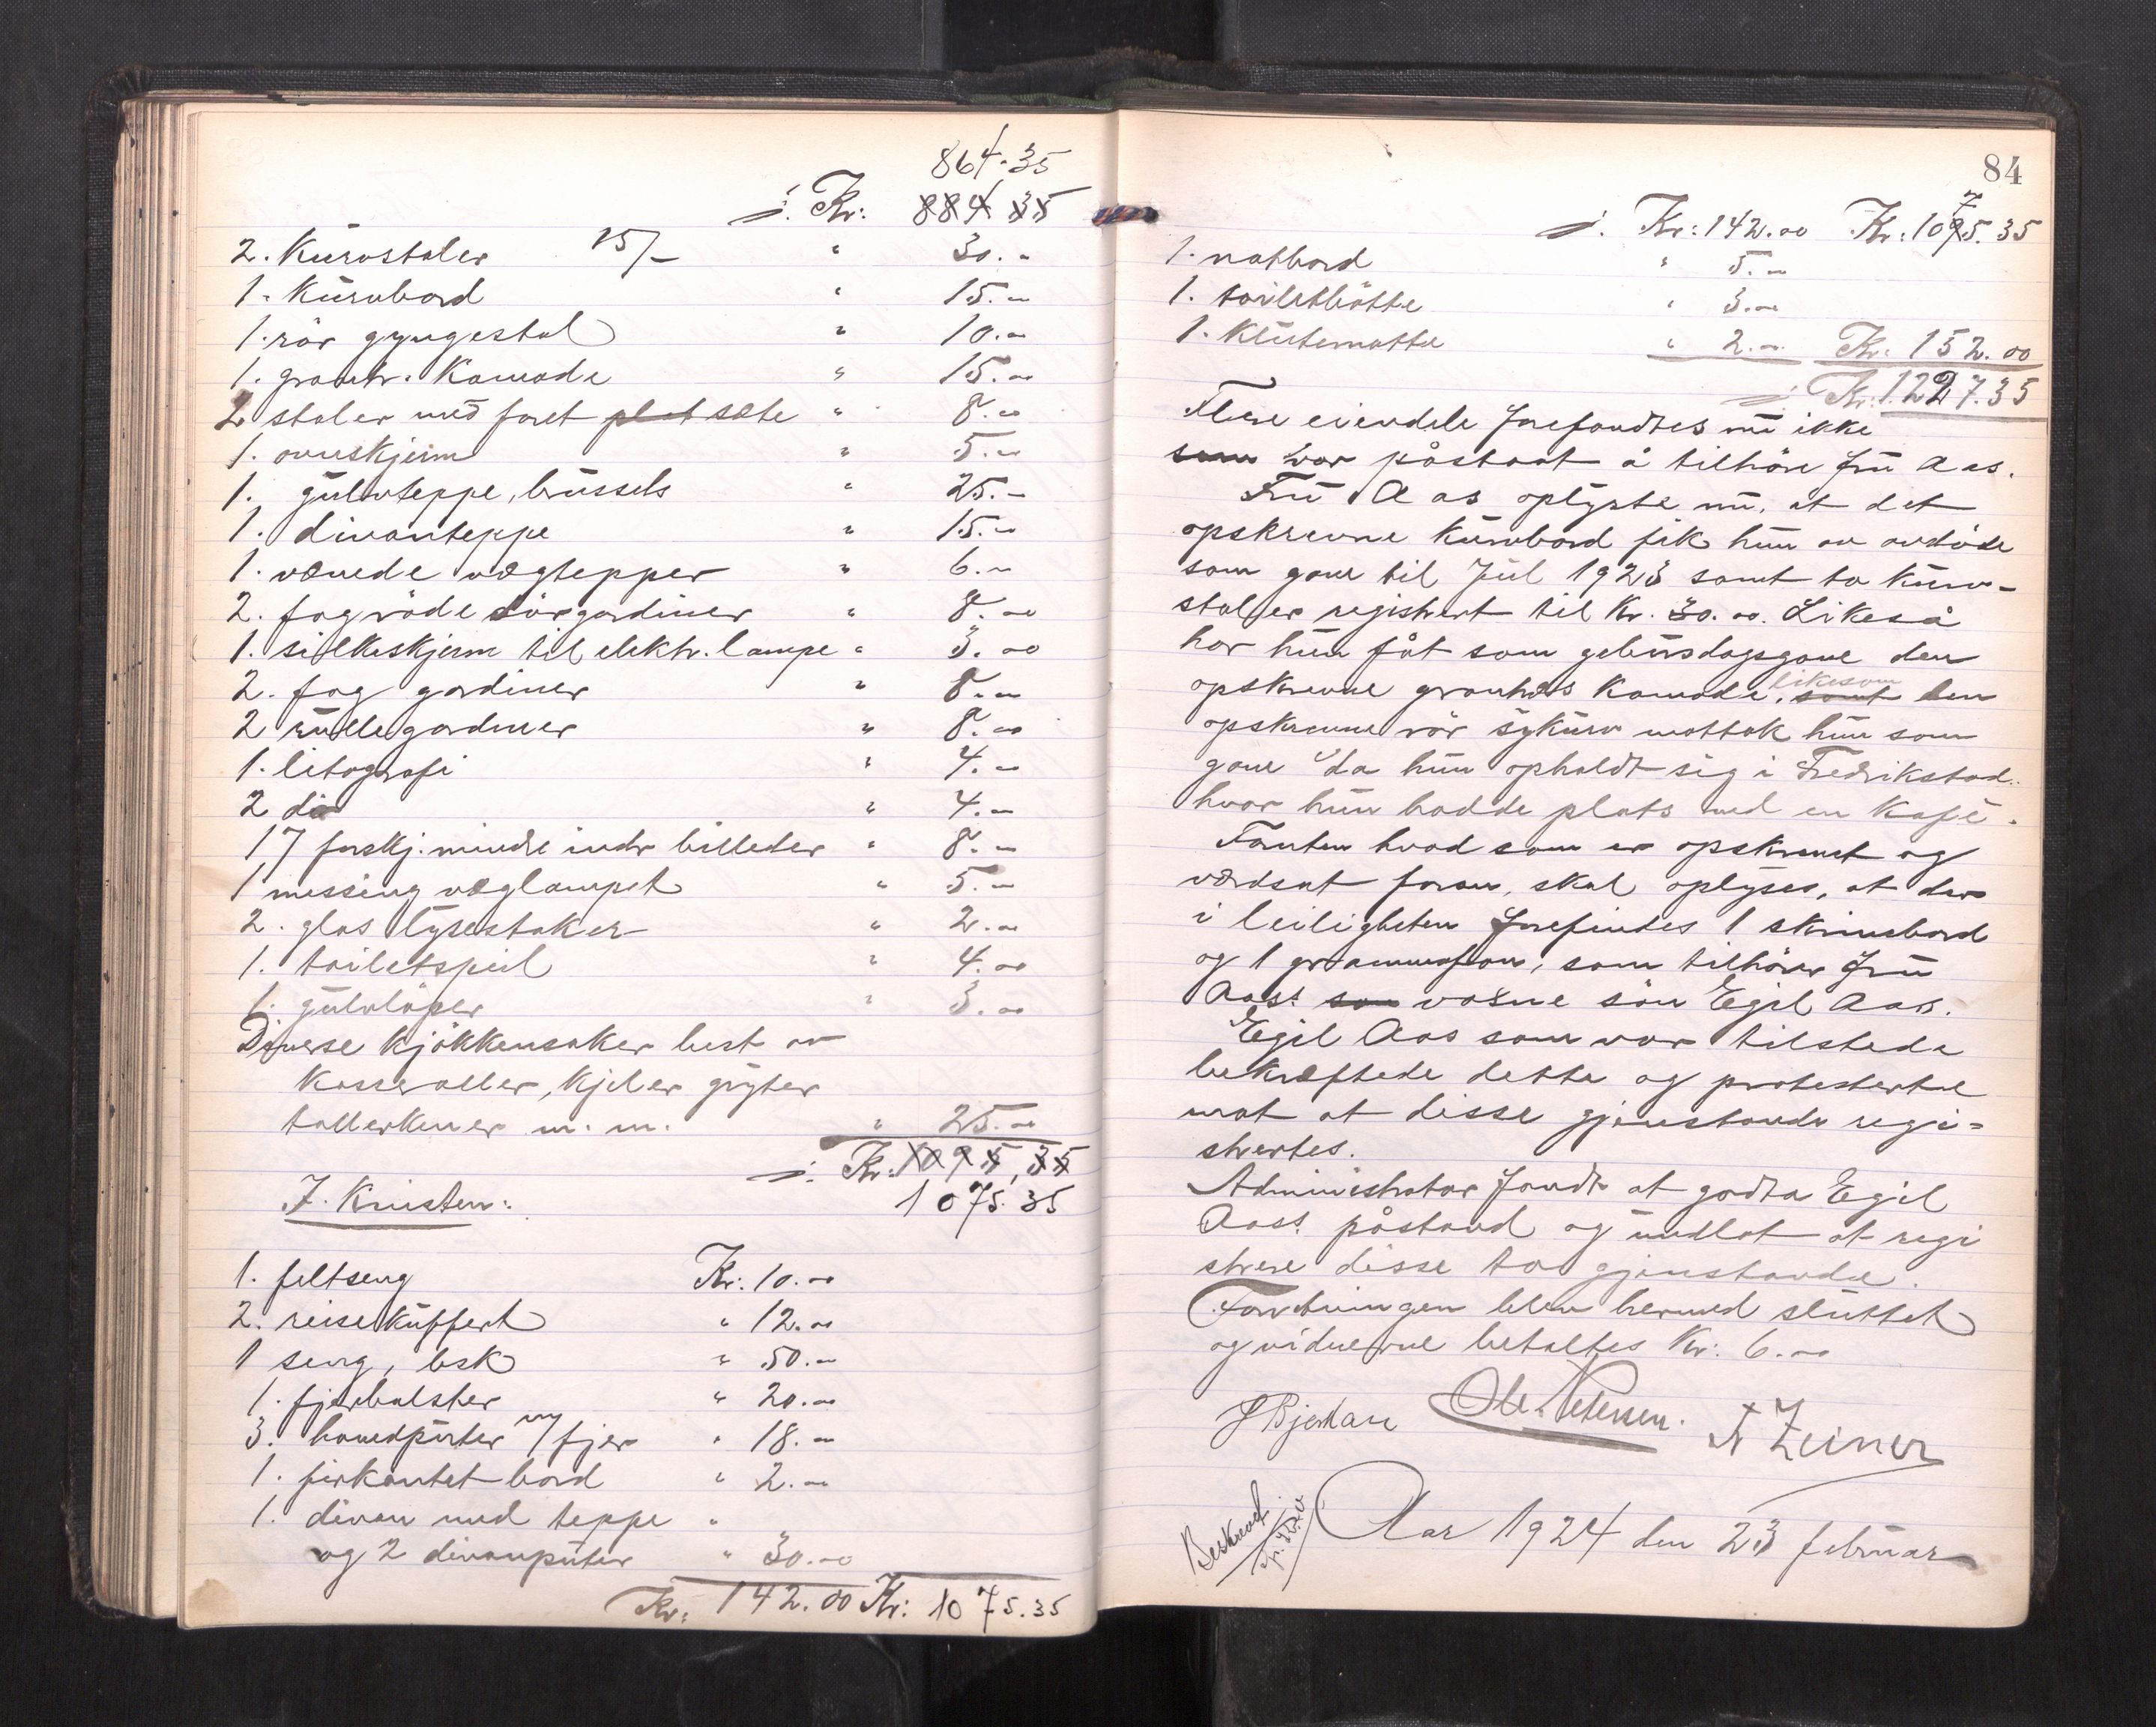 864.35
i. Kr: 884 35
2. Kurvstoler 15/- " 30.-
1. Kurvbord " 15.-
1. rör gyngestol " 10.-
1. grantr. Komode " 15.-
2 stoler med foret plat sæte " 8.-
1. ovnskjerm " 5.-
1. gulvteppe, brüssels " 25.-
1. divanteppe " 15.-
1. vævede vægtepper " 6.-
2. fag röde dörgardiner " 8.00
1. silkeskjerm til elektr. lampe " 3.00
2. fag gardiner " 8.-
2 rullegardiner " 8.00
1. litografi " 4.-
2 do " 4.-
17 forskj. mindre indr billeder " 8.-
1 messing væglampet " 5.-
2. glas lysestaker " 2.-
1. toiletspeil " 4.00
1. gulvlöper " 3.00
Diverse kjökkensaker best av
Kasseroller, Kjeler gryter
tallerkener m. m. " 25.-
i. Kr: 1095,35
1075.35
I. Kvisten:
1. feltseng Kr: 10.-
2. reisekuffert " 12.-
1 seng, bsk " 50.-
1. fjærbolster " 20.-
3. hovedputer m/ fjer " 18.-
1. firkantet bord " 2.-
1. divan med teppe "
og 2 divanputer " 30.-
Kr: 142.00 Kr: 1075.35
84
7
i. Kr: 142.00 Kr: 1095.35
1. natbord " 5.-
1. toiletbötte " 3.-
1. Klutematte " 2.- Kr: 152.00
i Kr: 1227.35
Flere eiendele forefandtes nu ikke
som var påstaat å tilhöre fru Aas.
Fru Aas oplyste nu, at det
opskrevne Kurvbord fik hun av avdöde
som gave til Jul 1923 samt to Kurv-
stoler registrert til Kr. 30.00. Likeså
har hun fåt som geburdsdagsgave den
likesom
opskrevne grantræs Komode, samt den
opskrevne rör sykurv mottok hun som
gave da hun opholdt sig i Fredrikstad
hvor hun hadde plats ved en Kafé.
Foruten hvad som er opskrevet og
værdsat foran, skal oplyses, at der
i leiligheten forefindes 1 skrivebord
og 1 grammofon, som tilhörer fru
Aas' som voksne sön Egil Aas.
Egil Aas som var tilstede
bekræftede dette og protesterte
mot at disse gjenstande regi=
strertes.
Administrator fandt at godta Egil
Aas' påstand og undlot at regi
strere disse to gjenstande.
Forretningen blev hermed sluttet
og vidnerne betaltes Kr: 6.-
J Bjerkan Ole Petersen. A Zeiner
Beskrevet
Aar 1924 den 23 februar